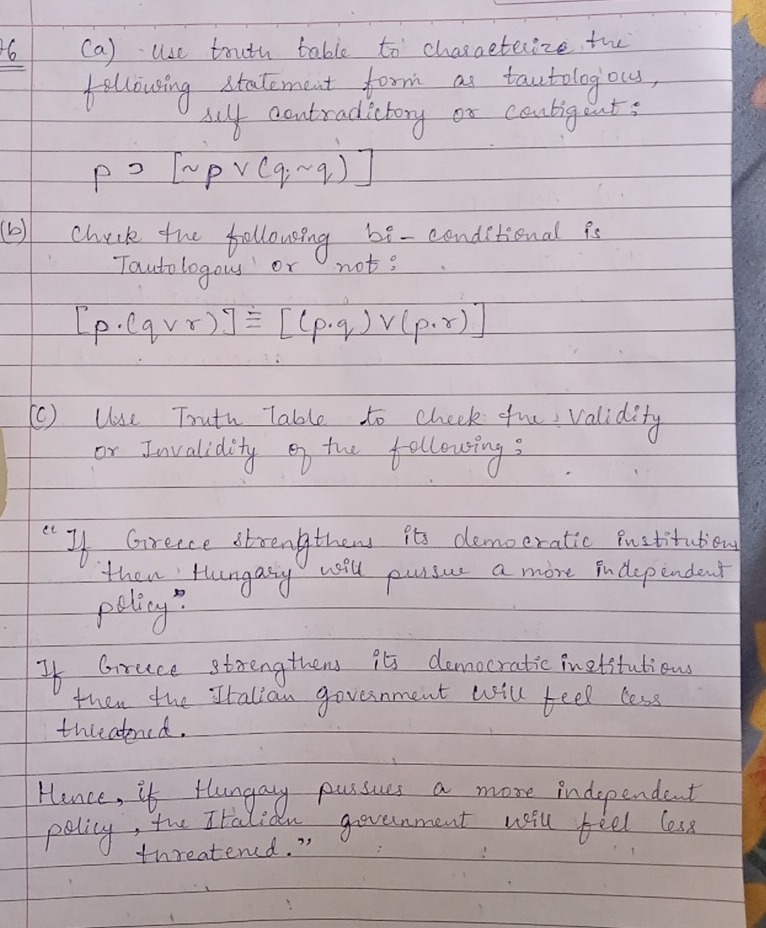 (a) Use truth table to characterize the
following statement form as tautologous,
self contradictory or contigent:
p ⊃ [~p ∨ (q.~q)]
(b) Check the following bi-conditional is
Tautologous or not:
[p.(q∨r)] ≡ [(p.q) ∨ (p.r)]
(c) Use Truth Table to check the validity
or Invalidity of the following:
"If Greece strengthens its democratic institutions
then Hungary will pursue a more independent
policy."
If Greece strengthens its democratic institutions
then the Italian government will feel less
threatened.
Hence, if Hungary pursues a more independent
policy, the Italian government will feel less
threatened."